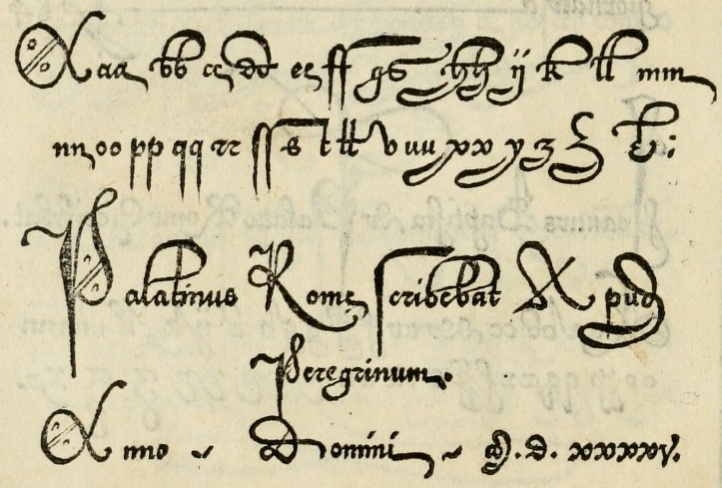 Aaa bb cc dd ee ff gg hh ij k ll mm
nn oo pp qq rr ſſ s t tt v uu xx y z ʒ &:
Palatinus Rome Scribebat Apud
Peregrinum.
Anno Domini M.D.xxxxv.